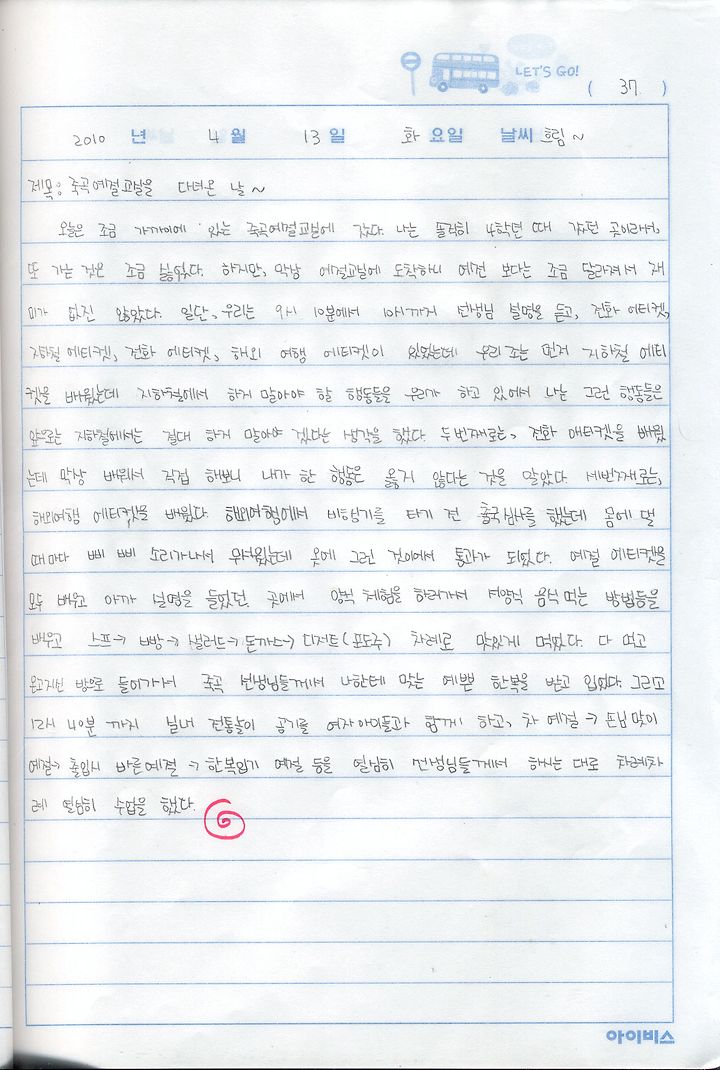 LET'S GO!
( 37 )
2010 년 4 월 13 일 화 요일 날씨 흐림~
제목: 죽곡예절교실을 다녀온 날~
오늘은 조금 가까이에 있는 죽곡예절교실에 갔다. 나는 똑같히 4학년 때 갔던 곳이라서,
또 가는 것은 조금 싫었다. 하지만, 막상 예절교실에 도착하니 예전 보다는 조금 달라져서 재
미가 없진 않았다. 일단, 우리는 9시 10분에서 10시까지 선생님 설명을 듣고, 전화 에티켓,
지하철 에티켓, 전화 에티켓, 해외 여행 에티켓이 있었는데 우리 조는 먼저 지하철 에티
켓을 배웠는데 지하철에서 하지 말아야 할 행동들을 우리가 하고 있어서 나는 그런 행동들은
앞으로는 지하철에서는 절대 하지 말아야 겠다는 생각을 했다. 두번째로는, 전화 에티켓을 배웠
는데 막상 배워서 직접 해보니 내가 한 행동은 옳지 않다는 것을 알았다. 세번째로는,
해외여행 에티켓을 배웠다. 해외여행에서 비행기를 타기 전 출국심사를 했는데 몸에 댈
때마다 삐 삐 소리가나서 무서웠는데 옷에 그런 것이어서 통과가 되었다. 예절 에티켓을
모두 배우고 아까 설명을 들었던 곳에서 양식 체험을 하러가서 서양식 음식 먹는 방법등을
배우고 스프→ 빵→ 샐러드→ 돈까스→ 디저트(포도주) 차례로 맛있게 먹었다. 다 먹고
온고지신 방으로 들어가서 죽곡 선생님들께서 나한테 맞는 예쁜 한복을 받고 입었다. 그리고
12시 40분 까지 실내 전통놀이 공기를 여자아이들과 함께 하고, 차 예절→ 손님맞이
예절→ 출입시 바른예절 → 한복입기 예절 등을 열심히 선생님들께서 하시는 대로 차례차
례 열심히 수업을 했다.
아이비스